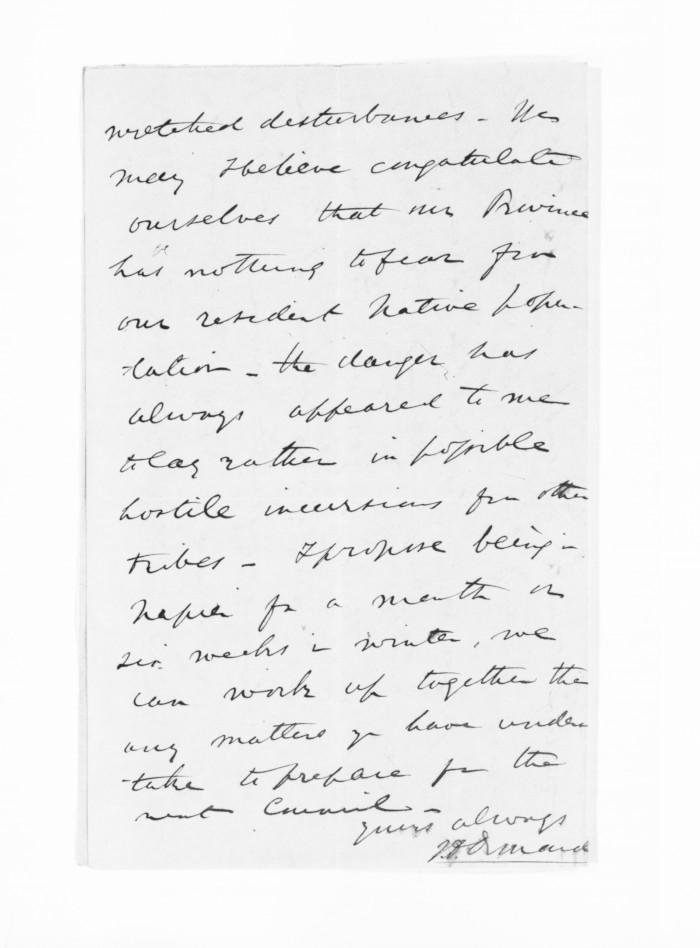 wretched disturbances - We
may I believe congatulate
ourselves that our Province
has nothing to fear from
our resident Native popu-
-lation - the danger has
always appeared to me
to lay rather in possible
hostile incursions from other
tribes - I propose being in
Napier for a month or
six weeks in winter, we
can work up together then
any matters you have under
-take to prepare for the
next Council -
yours always
J D Ormond